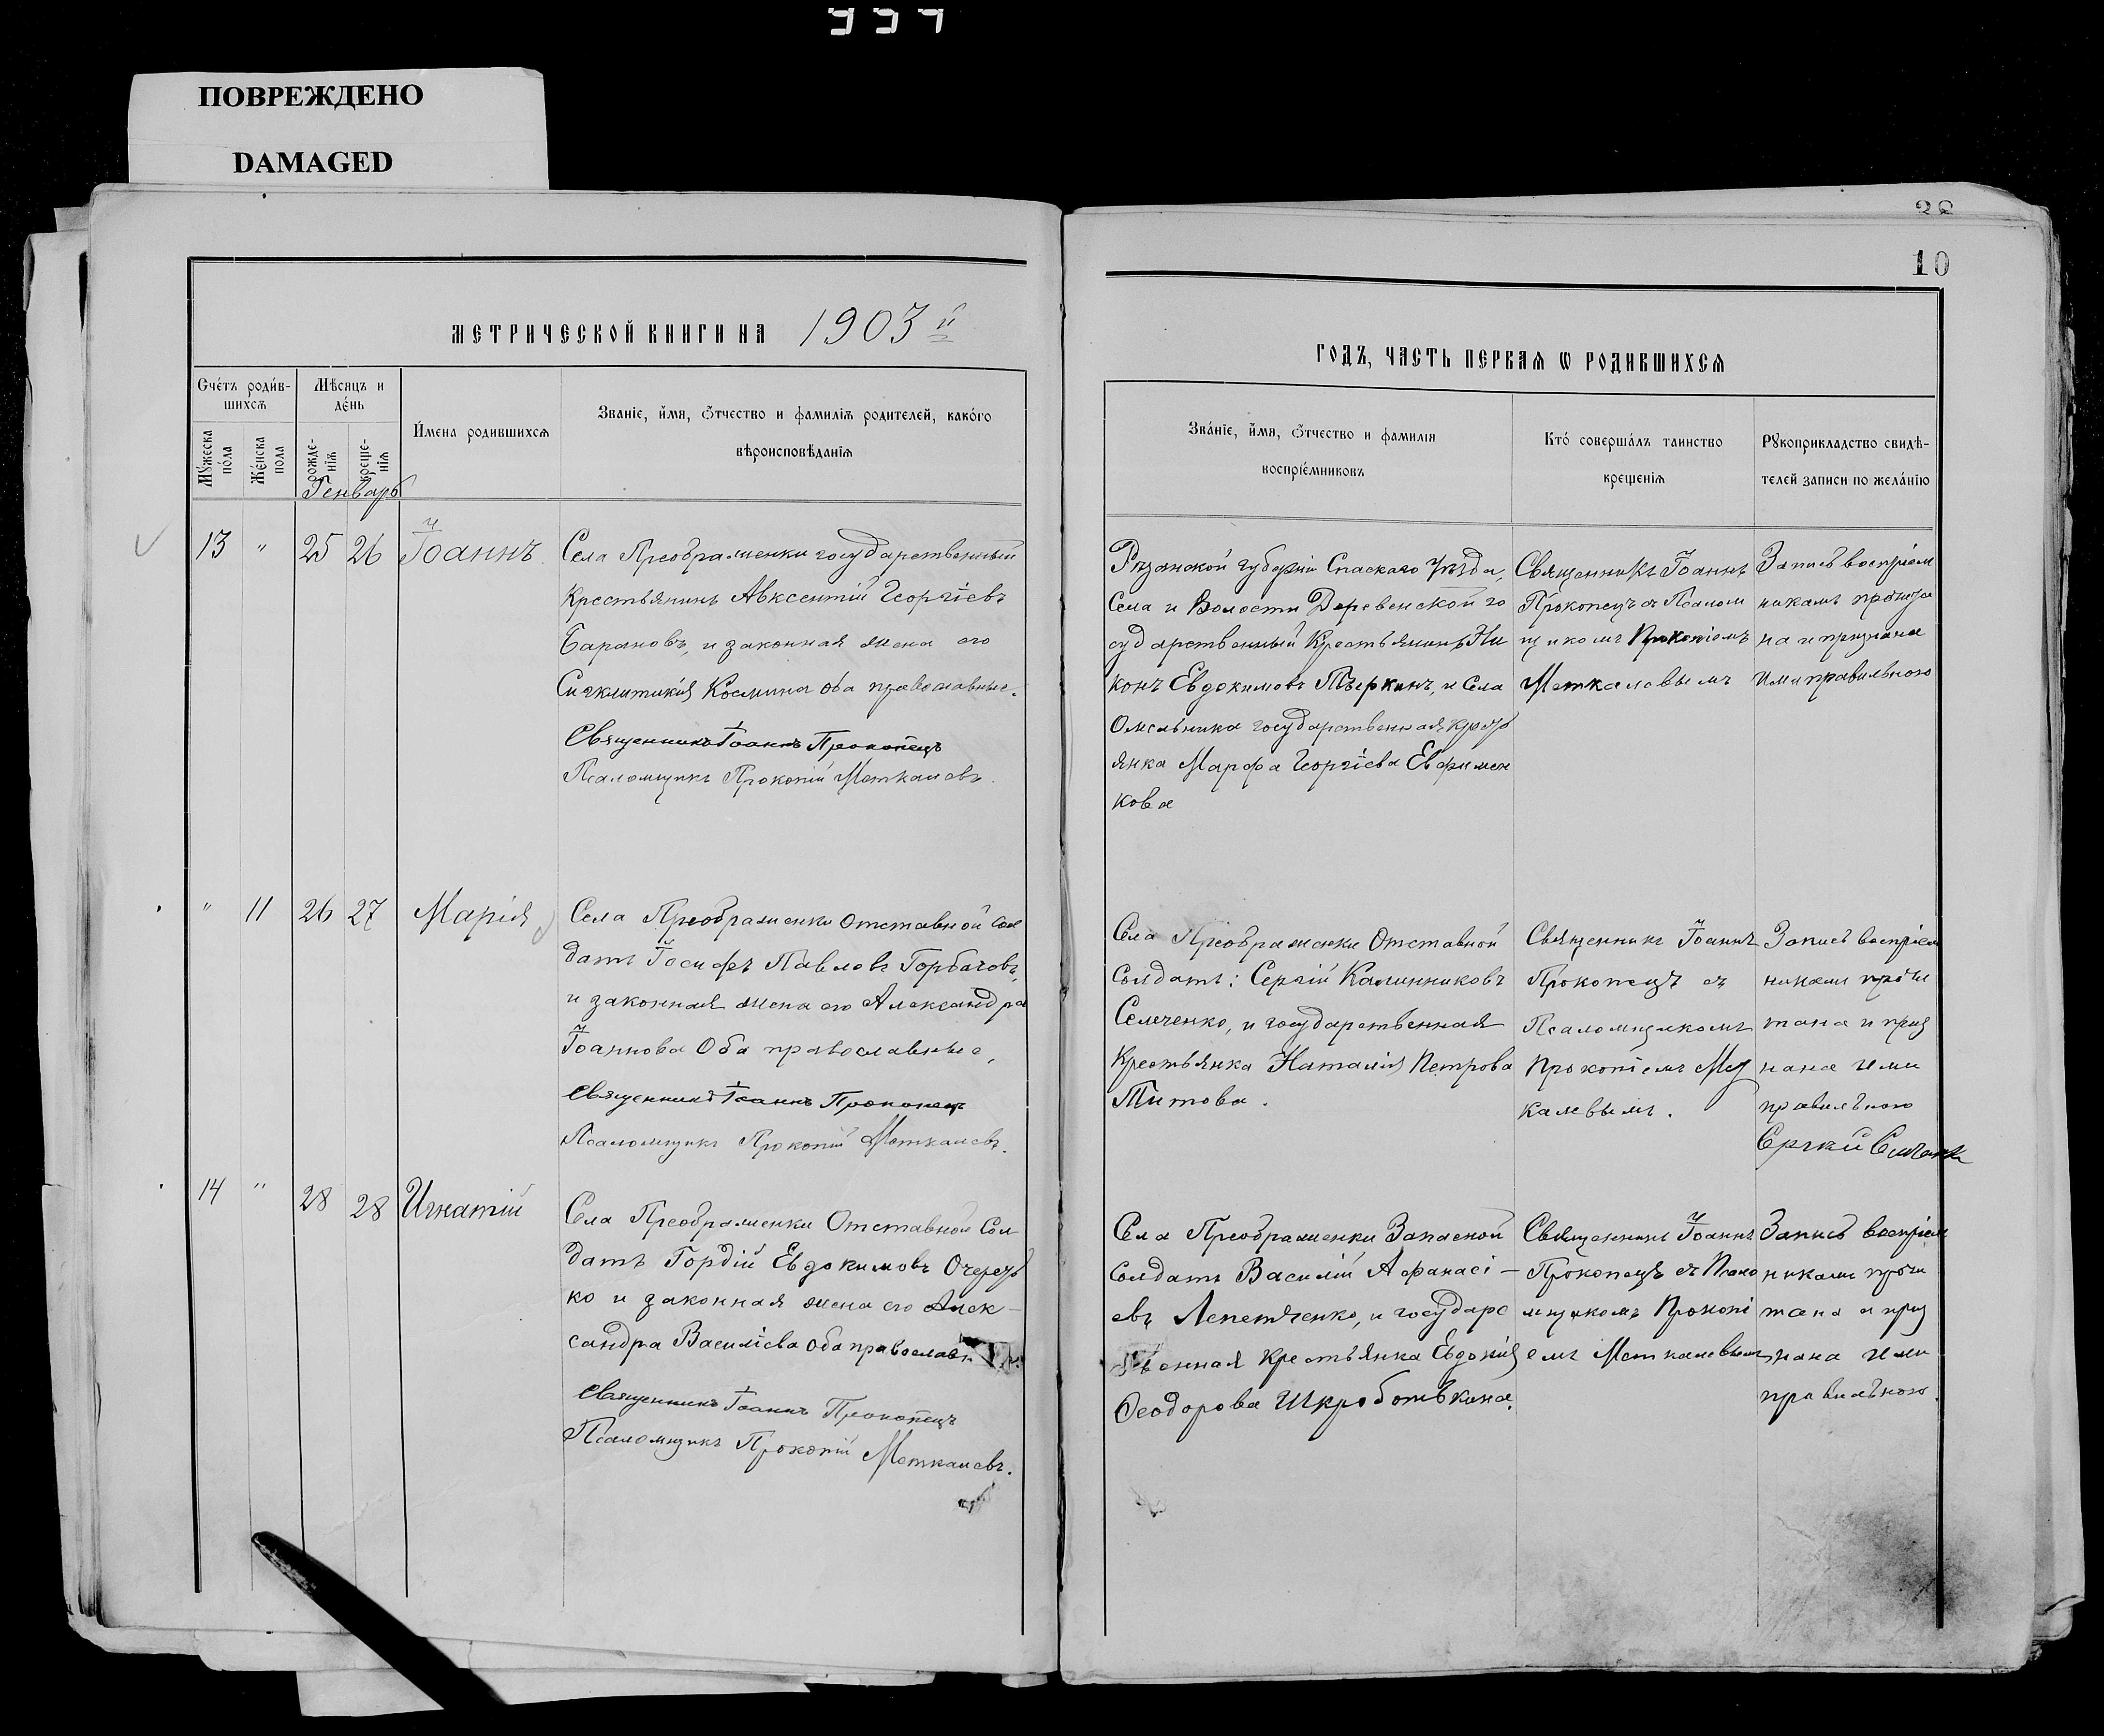 ПОВРЕЖДЕНО
DAMAGED
10
МЕТРИЧЕСКОЙ КНИГИ НА 1903 й
ГОДЪ, ЧАСТЬ ПЕРВАЯ Ѡ РОДИВШИХСЯ
Счетъ родив-
шихся
Мѣсяцъ и
день
Мужеска
пола
Женска
пола
рожде-
нія
креще-
нія
Имена родившихся
Званіе, имя, отчество и фамилія родителей, какого
вѣроисповѣданія
Званіе, имя, отчество и фамилія
воспріемниковъ
Кто совершалъ таинство
крещенія
Рукоприкладство свидѣ-
телей записи по желанію
Генварь
13 " 25 26 Іоаннъ
Села Преображенки государственный
крестьянинъ Авксентій Георгіевъ
Барановъ, и законная жена его
Сигклитикія Космина оба православные.
Священникъ Іоаннъ Прокопецъ
Псаломщикъ Прокопій Меткалевъ.
Рязанской губерніи Спаскаго Уѣзда,
Села и Волости Деревенской го
сударственный Крестьянинъ Ни
конъ Евдокимовъ Тѣркинъ, и Села
Омельника государственная крест
янка Марфа Георгіева Ефимен
кова
Священникъ Іоаннъ
Прокопецъ съ Псалом
щикомъ Прокопіемъ
Меткалевымъ
Запись воспріем
никамъ прочита
на и признана
ими правильною
" 11 26 27 Марія
Села Преображенки Отставной сол
датъ Іосифъ Павловъ Горбачовъ,
и законная жена его Александра
Іоаннова Оба православные,
Священникъ Іоаннъ Прокопецъ
Псаломщикъ Прокопій Меткалевъ.
Села Преображенки Отставной
Солдатъ: Сергій Калинниковъ
Семченко, и государственная
Крестьянка Наталія Петрова
Титова.
Священникъ Іоаннъ
Прокопецъ съ
Псаломщикомъ
Прокопіемъ Мет
калевымъ.
Запись воспріем
никамъ прочи
тана и приз
нана ими
правильною
14 " 28 28 Игнатій
Села Преображенки Отставной Сол
датъ Гордій Евдокимовъ Очередь
ко и законная жена его Алек-
сандра Василіева оба православн
Священникъ Іоаннъ Прокопецъ
Псаломщикъ Прокопій Меткалевъ.
Села Преображенки Запасной
Солдатъ Василій Афанасі-
евъ Лепетченко, и государс
твенная крестьянка Евдокія
Феодорова Шкроботькина.
Священникъ Іоаннъ
Прокопецъ съ Псало
мщикомъ Прокопі
емъ Меткалевымъ
Запись воспріем
никамъ прочи
тана и приз
нана ими
правильною.